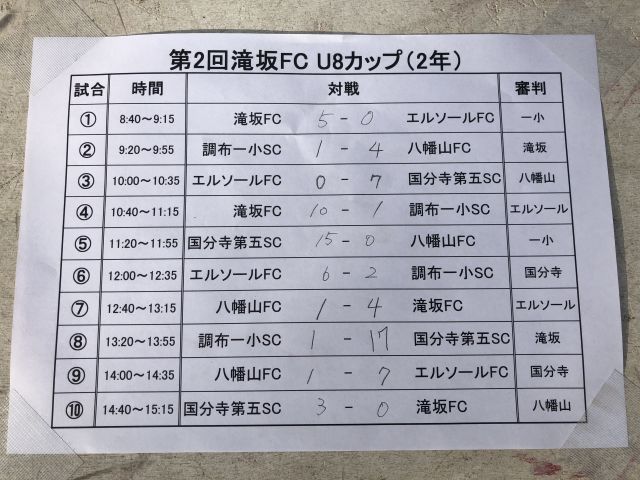 第2回滝坂FC U8カップ(2年)
試合 時間 対戦 審判
① 8:40～9:15 滝坂FC 5 - 0 エルソールFC 一小
② 9:20～9:55 調布一小SC 1 - 4 八幡山FC 滝坂
③ 10:00～10:35 エルソールFC 0 - 7 国分寺第五SC 八幡山
④ 10:40～11:15 滝坂FC 10 - 1 調布一小SC エルソール
⑤ 11:20～11:55 国分寺第五SC 15 - 0 八幡山FC 一小
⑥ 12:00～12:35 エルソールFC 6 - 2 調布一小SC 国分寺
⑦ 12:40～13:15 八幡山FC 1 - 4 滝坂FC エルソール
⑧ 13:20～13:55 調布一小SC 1 - 17 国分寺第五SC 滝坂
⑨ 14:00～14:35 八幡山FC 1 - 7 エルソールFC 国分寺
⑩ 14:40～15:15 国分寺第五SC 3 - 0 滝坂FC 八幡山